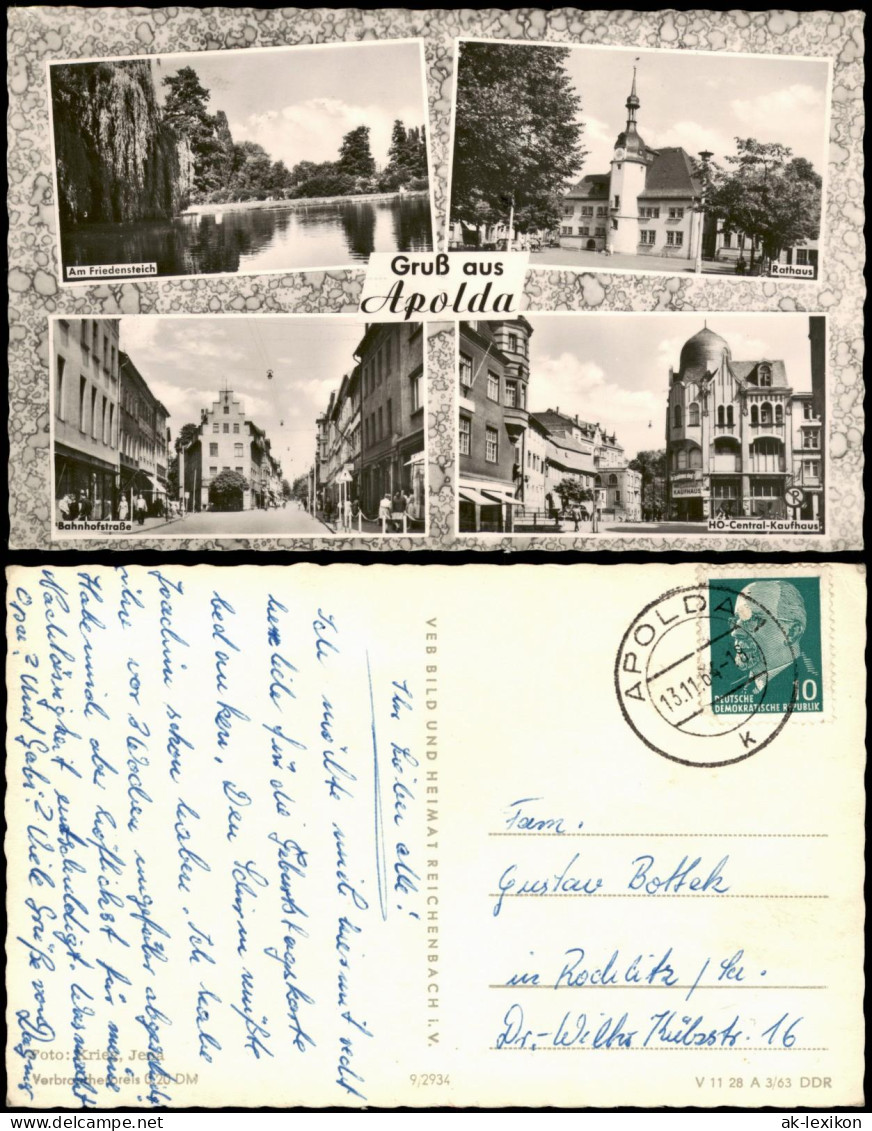 Am Friedensteich
Rathaus
Gruß aus
Apolda
Bahnhofstraße
KAUFHAUS
HO-Central-Kaufhaus
Ihr Lieben alle!
Ich möchte mich hiermit recht
herzlich für die Geburtstagskarte
bedanken. Den Schirm müßte
Joachim schon haben. Ich habe
ihn vor Wochen ungefähr abgeschickt.
Habe mich aber höflichst für meine
Nachlässigkeit entschuldigt. Was macht
Opa? Und Gabi? Viele Grüße von Dagmar
VEB BILD UND HEIMAT REICHENBACH i. V.
APOLDA 1
13.11.64-18
k
DEUTSCHE
DEMOKRATISCHE REPUBLIK
10
Fam.
Gustav Bottek
in Rochlitz / Sa.
Dr.-Wilh. Külzstr. 16
Foto: Krieg, Jena
Verbraucherpreis 0,20 DM
9/2934
V 11 28 A 3/63 DDR
ak-lexikon